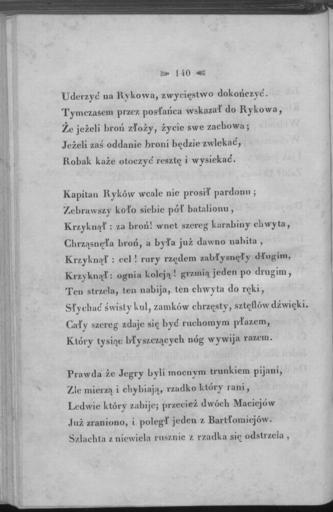 140
Uderzyć na Rykowa, zwycięstwo dokończyć.
Tymczasem przez posłańca wskazał do Rykowa,
Że jeżeli broń złoży, życie swe zachowa;
Jeżeli zaś oddanie broni będzie zwlekać,
Robak każe otoczyć resztę i wysiekać.
Kapitan Ryków wcale nie prosił pardonu;
Zebrawszy koło siebie pół batalionu,
Krzyknął: za broń! wnet szereg karabiny chwyta,
Chrząsnęła broń, a była już dawno nabita,
Krzyknął: cel! rury rzędem zabłysnęły długim,
Krzyknął: ognia koleją! grzmią jeden po drugim,
Ten strzela, ten nabija, ten chwyta do ręki,
Słychać świsty kul, zamków chrzęsty, sztęflów dźwięki.
Cały szereg zdaje się być ruchomym płazem,
Który tysiąc błyszczących nóg wywija razem.
Prawda że Jegry byli mocnym trunkiem pijani,
Zle mierzą i chybiają, rzadko który rani,
Ledwie który zabije; przecież dwóch Maciejów
Już zraniono, i poległ jeden z Bartłomiejów.
Szlachta z niewiela rusznic z rzadka się odstrzela,